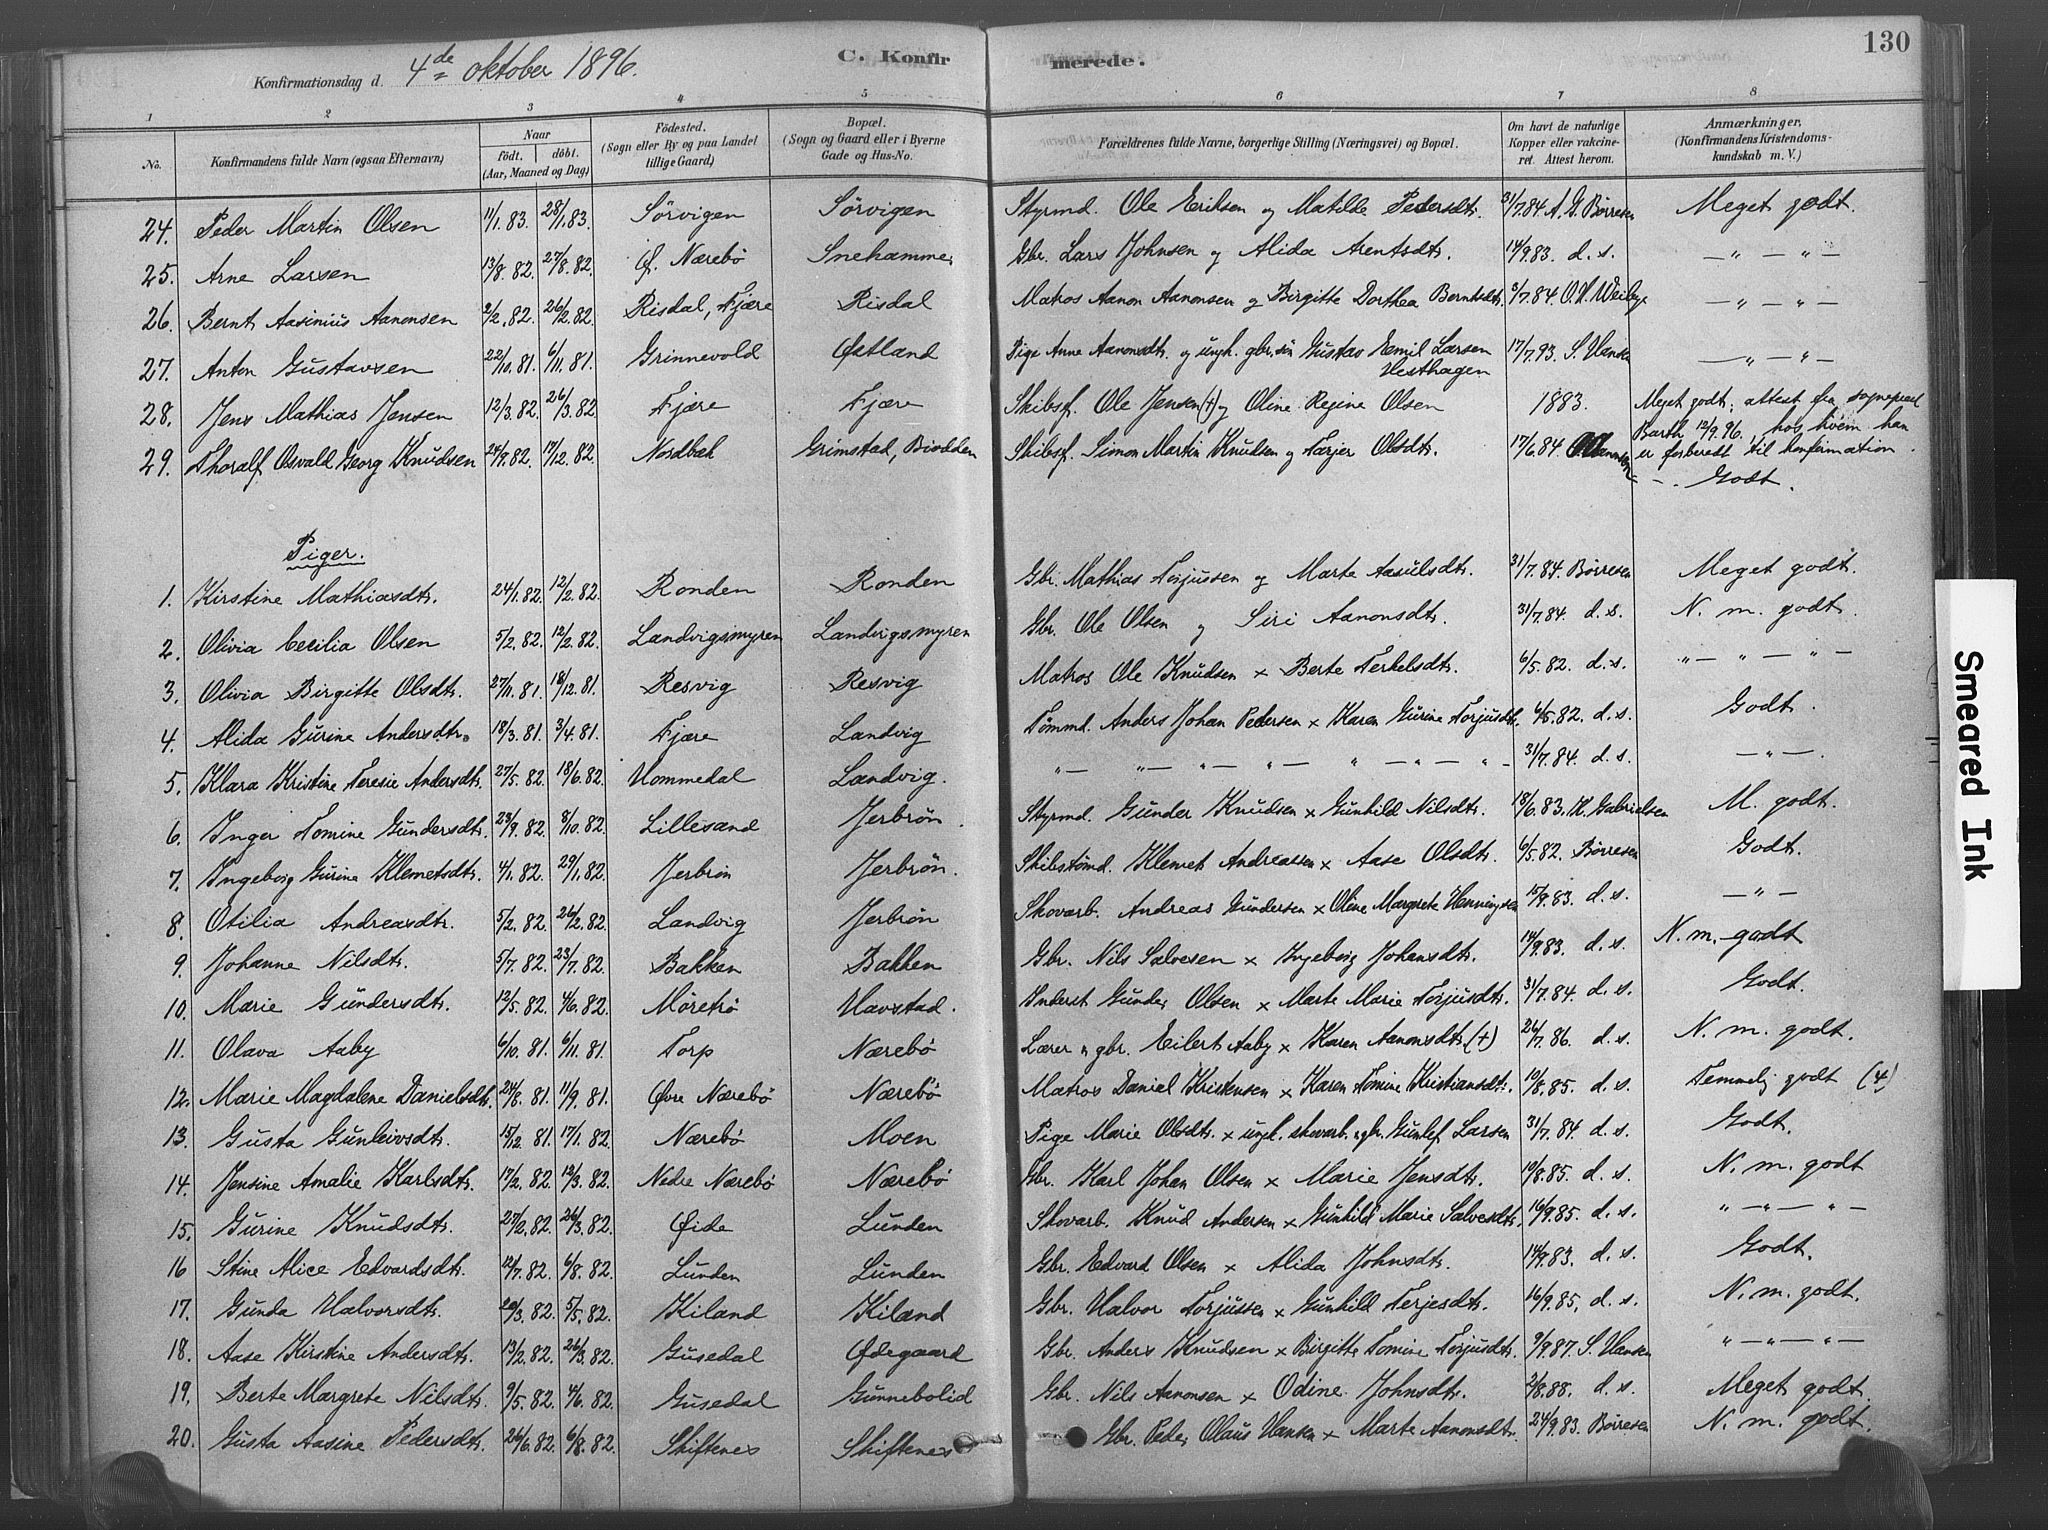 130
C. Konfir merede.
Konfirmationsdag d. 4de oktober 1896.
1 2 3 4 5 6 7 8
No. Konfirmandens fulde Navn (ogsaa Efternavn) Naar født. døbt. (Aar, Maaned og Dag) Fødested. (Sogn eller By og paa Landet tillige Gaard) Bopæl. (Sogn og Gaard eller i Byerne Gade og Hus-No. Forældrenes fulde Navne, borgerlige Stilling (Næringsvei) og Bopæl. Om havt de naturlige Kopper eller vakcineret. Attest herom. Anmærkninger, (Konfirmandens Kristendomskundskab m. V.)
24. Peder Martin Olsen 11/1.83. 28/1.83. Sörvigen Sörvigen Styrmd. Ole Eriksen og Matilde Pedersdtr. 31/7.84 A. G. Børresen Meget godt.
25. Arne Larsen 13/8.82. 27/8.82. Ø. Nærebö Snehammer Gbr. Lars Johnsen og Alida Arentsdtr. 14/9.83. d. s. — „ — „ —
26. Bernt Aasinius Aanonsen 2/2.82. 26/2.82. Risdal, Fjære Risdal Matros Aanon Aanonsen og Birgitte Dorthea Berntsdtr. 3/7.84. O. H. Weibye — „ — „ —
27. Anton Gustavsen 22/10.81. 6/11.81. Grinnevold Østland Pige Anne Aanonsdtr. og ungk. gbr. sön Gustav Emil Larsen Vesthagen 17/7.93. S. Hansen — „ — „ —
28. Jens Mathias Jensen 12/3.82. 26/3.82 Fjære Fjære Skibsf. Ole Jensen (+) og Oline Regine Olsen 1883. Meget godt; attest fra sognepræst Barth 12/9.96., hos hvem han er forberedt til konfirmation.
29. Thoralf Osvald Georg Knudsen 24/7.82. 17/12.82. Nordbæk Grimstad, Biodden Skibsf. Simon Martin Knudsen og Tarjer Olsdtr. 17/6.84. Godt.
Piger.
1. Kirstine Mathiasdtr. 24/1.82. 12/2.82. Ronden Ronden Gbr. Mathias Torjussen og Marte Aasulsdtr. 31/7.84. Børresen Meget godt.
2. Olivia Cecilia Olsen 5/2.82. 12/2.82. Landvigsmyren Landvigsmyren Gbr. Ole Olsen og Siri Aanonsdtr. 31/7.84. d. s. N. m. godt.
3. Olivia Birgitte Olsdtr. 27/11.81. 18/12.81. Resvig Resvig Matros Ole Knudsen × Berte Terkelsdtr. 6/5.82. d. s. „ — „ — „ —
4. Alida Gurine Andersdtr. 18/3.81. 3/4.81. Fjære Landvig Tømmd. Anders Johan Pedersen × Karen Gurine Torjusdtr. 6/5.82. d. s. Godt.
5. Klara Kristine Teresie Andersdtr. 27/5.82. 18/6.82. Hommedal Landvig. „ — „ — „ — „ — „ — „ — „ - 31/7.84. d. s. — „ —
6. Inger Tomine Gundersdtr. 23/9.82. 8/10.82. Lillesand Jerbrön. Styrmd. Gunder Knudsen × Gunhild Nilsdtr. 18/6.83. H. Gabrielsen M. godt.
7. Ingeborg Gurine Klemetsdtr. 4/1.82. 29/1.82. Jerbrön Jerbrön. Skibstømd. Klemet Andreassen × Aase Olsdtr. 6/5.82. Børresen Godt.
8. Otilia Andreasdtr. 5/2.82. 26/2.82. Landvig Jerbrön Skovarb. Andreas Gundersen × Oline Margrete Henningsen 15/9.83. d. s. — „ —
9. Johanne Nilsdtr. 5/7.82. 23/7.82. Bakken Bakken Gbr. Nils Salvesen × Ingeborg Johansdtr. 14/9.83. d. s. N. m. godt
10. Marie Gundersdtr. 12/5.82. 4/6.82. Möretrö Havstad. Inderst Gunder Olsen × Marte Marie Torjusdtr. 31/7.84. d. s. Godt.
11. Olava Aaby 6/10.81. 6/11.81. Torp Nærebö Lærer og gbr. Eilert Aaby × Karen Aanonsdtr. (+) 26/7.86. d. s. N. m. godt.
12. Marie Magdalene Danielsdtr. 24/8.81. 11/9.81. Øvre Nærebö Nærebö Matros Daniel Kristensen × Karen Tomine Kristiansdtr. 10/8.85. d. s. Temmelig godt (4)
13. Gusta Gunleivsdtr. 15/12.81. 17/1.82. Nærebö Moen Pige Marie Olsdtr. × ungk. skovarb. og gbr. Gunlef Larsen 31/7.84. d. s. Godt.
14. Jensine Amalie Karlsdtr. 17/2.82. 12/3.82. Nedre Nærebö Nærebö Gbr. Karl Johan Olsen × Marie Jensdtr. 10/8.85. d. s. N. m. godt
15. Gurine Knudsdtr. 27/2.82. 26/3.82. Øide Lunden Skovarb. Knud Andersen × Gunhild Marie Salvesdtr. 16/9.85. d. s. „ — „ — „ —
16 Stine Alice Edvardsdtr. 12/7.82. 6/8.82. Lunden Lunden Gbr. Edvard Olsen × Alida Johnsdtr. 14/9.83. d. s. Godt.
17. Gunda Halvorsdtr. 20/3.82. 5/5.82. Kiland Kiland Gbr. Halvor Torjussen × Gunhild Terjesdtr. 16/9.85. d. s. N. m. godt.
18. Aase Kirstine Andersdtr. 13/2.82. 26/3.82. Gusedal Ødegaard Gbr. Anders Knudsen × Birgitte Tomine Torjusdtr. 9/9.87. S. Hansen „ — „ — „ —
19. Berte Margrete Nilsdtr. 9/5.82. 4/6.82. Gusedal Gunnebolid Gbr. Nils Aanonsen × Odine Johnsdtr. 2/8.88. d. s. Meget godt.
20. Gusta Aasine Pedersdtr. 26/6.82. 6/8.82. Skiftenes Skiftenes Gbr. Peder Olaus Hansen × Marte Aanonsdtr. 24/9.83. Børresen N. m. godt.
Smeared Ink